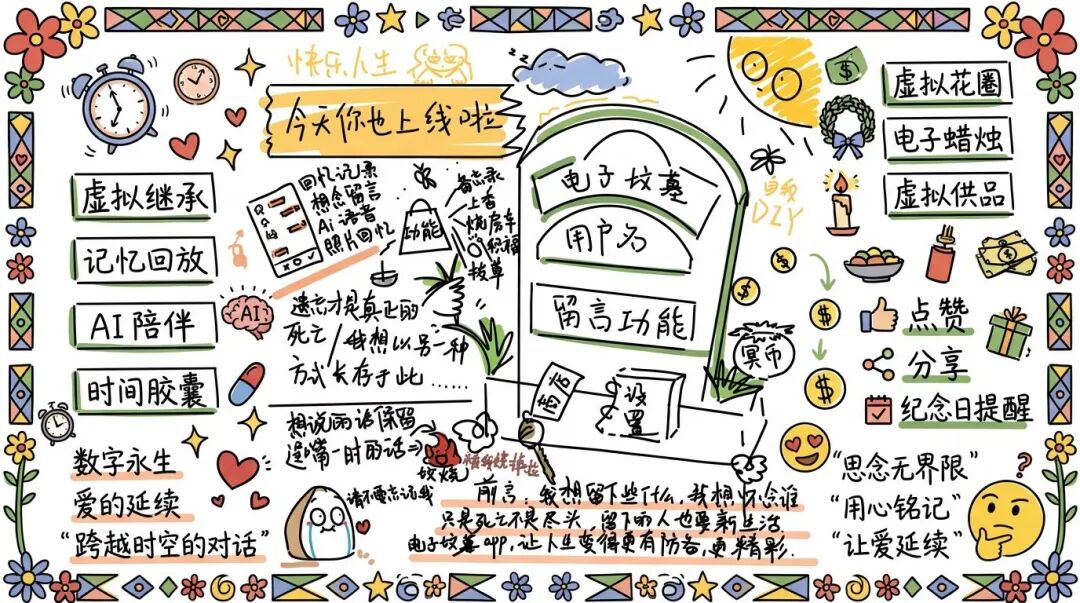 快乐人生
今天你也上线啦
虚拟继承
记忆回放
AI陪伴
AI
时间胶囊
数字永生
爱的延续
“跨越时空的对话”
回忆记录
想念留言
Ai语音
照片回忆
功能
备忘录
上香
烧房车
祝福
拔草
遗忘才是真正的
死亡/我想以另一种
方式长存于此……
想说的话保留
逞嘴一时的话⇒
焚烧
请不要忘记我
电子坟墓
用户名
留言功能
商店
设置
冥币
自动
DIY
前言:我想留下些什么,我想怀念谁
只是死亡不是尽头,留下的人也要新生活
电子坟墓app,让人生变得更有防备,更精彩.
虚拟花圈
电子蜡烛
虚拟供品
点赞
分享
纪念日提醒
“思念无界限”
“用心铭记”
“让爱延续”